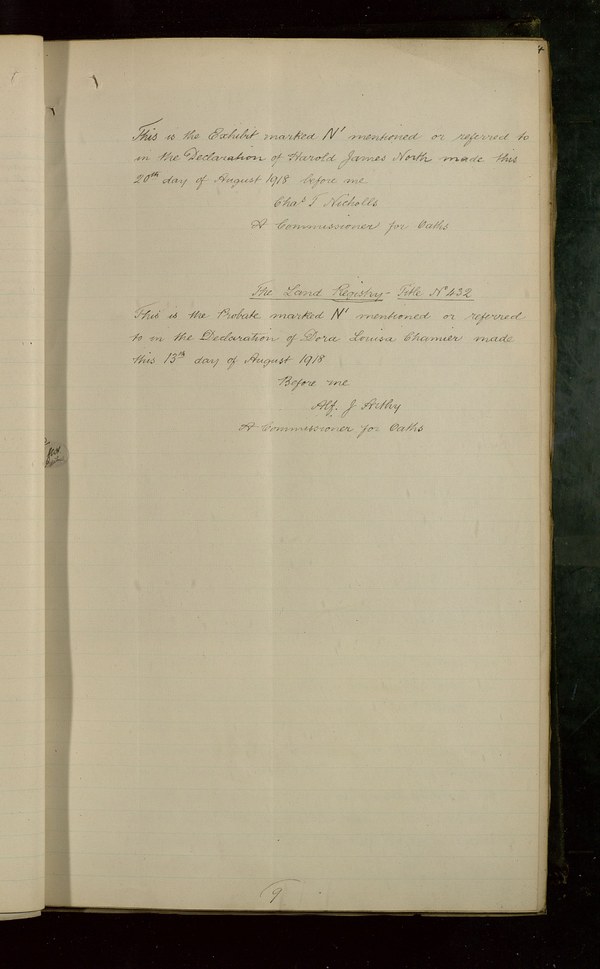 This is the Exhibit marked N¹ mentioned or referred to
in the Declaration of Harold James North made this
20th day of August 1918 before me
Chas T Nicholls
A Commissioner for Oaths
The Land Registry - Title No 432
This is the Probate marked N¹ mentioned or referred
to in the Declaration of Dora Louisa Chamier made
this 13th day of August 1918
Before me
Alf. J
A Commissioner for Oaths
9